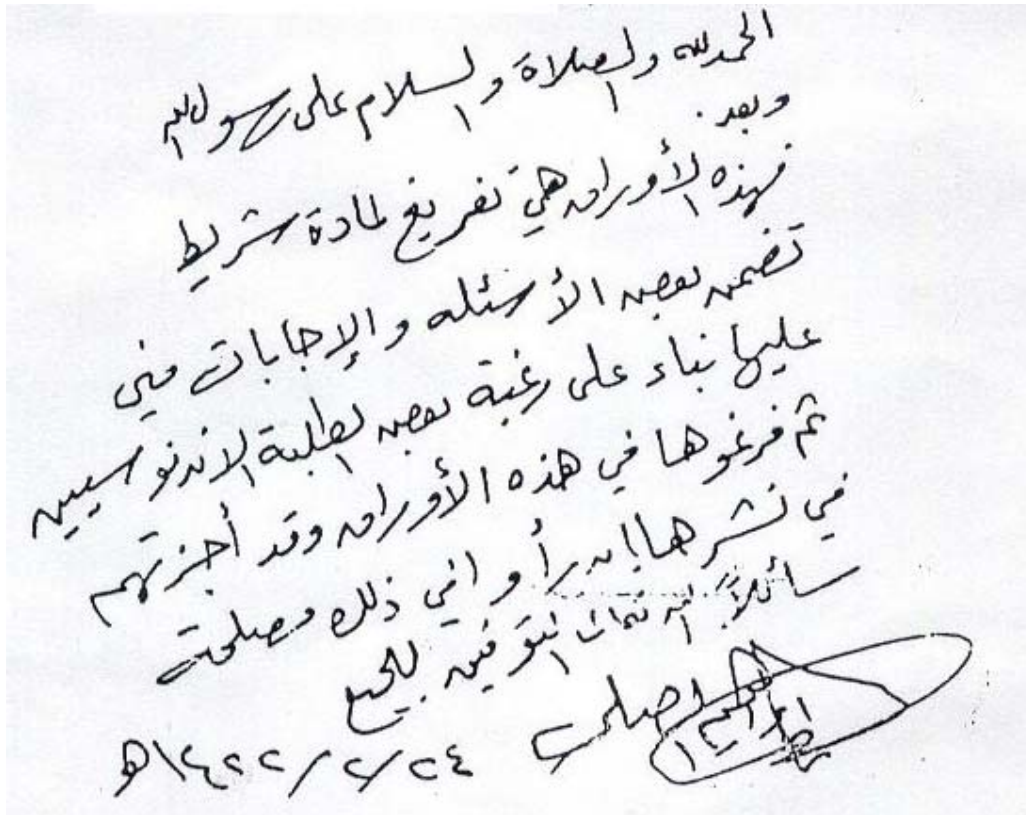 الحمد لله والصلاة والسلام على رسول الله
وبعد.
فهذه الأوراق هي تفريغ لمادة شريط
تضمن بعض الأسئله والإجابات مني
عليها بناء على رغبة بعض الطلبة الاندنوسيين
ثم فرغوها في هذه الأوراق وقد أجزتهم
في نشرها إن رأوا في ذلك مصلحة
سائلاً الله تعالى التوفيق للجميع
٢٤/٢/١٤٢٢هـ